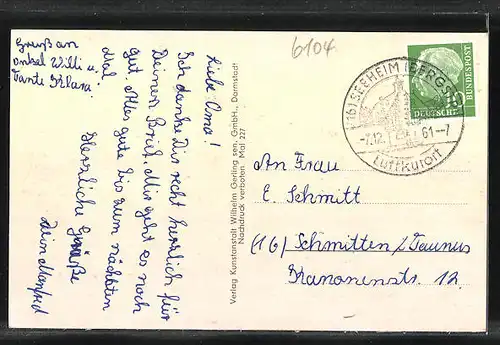 Gruß an
Onkel Willi u.
Tante Klara.
6104
Liebe Oma!
Ich danke Dir recht herzlich für
Deinen Brief. Mir geht es noch
gut. Alles gute bis zum nächsten
Mal
Herzliche Grüße
Dein Manfred
Verlag Kunstanstalt Wilhelm Gerling sen. GmbH., Darmstadt
Nachdruck verboten Mal 227
(16) SEEHEIM (BERGSTR.)
-7.12. 61--7
Luftkurort
DEUTSCHE
BUNDESPOST
10
An Frau
E. Schmitt
(16) Schmitten/Taunus
Kanonenstr. 12.